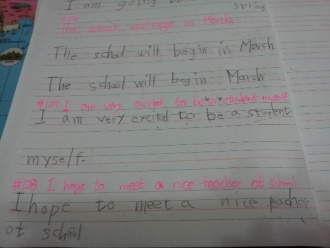 I am going
spring
The school will begin in March
The school will begin in March
The school will begin March
I am very excited to be a student myself
I am very excitd to be a student
myself.
#108 I hope to meet a nice teacher at school
I hope to meet a nice teacher
at school